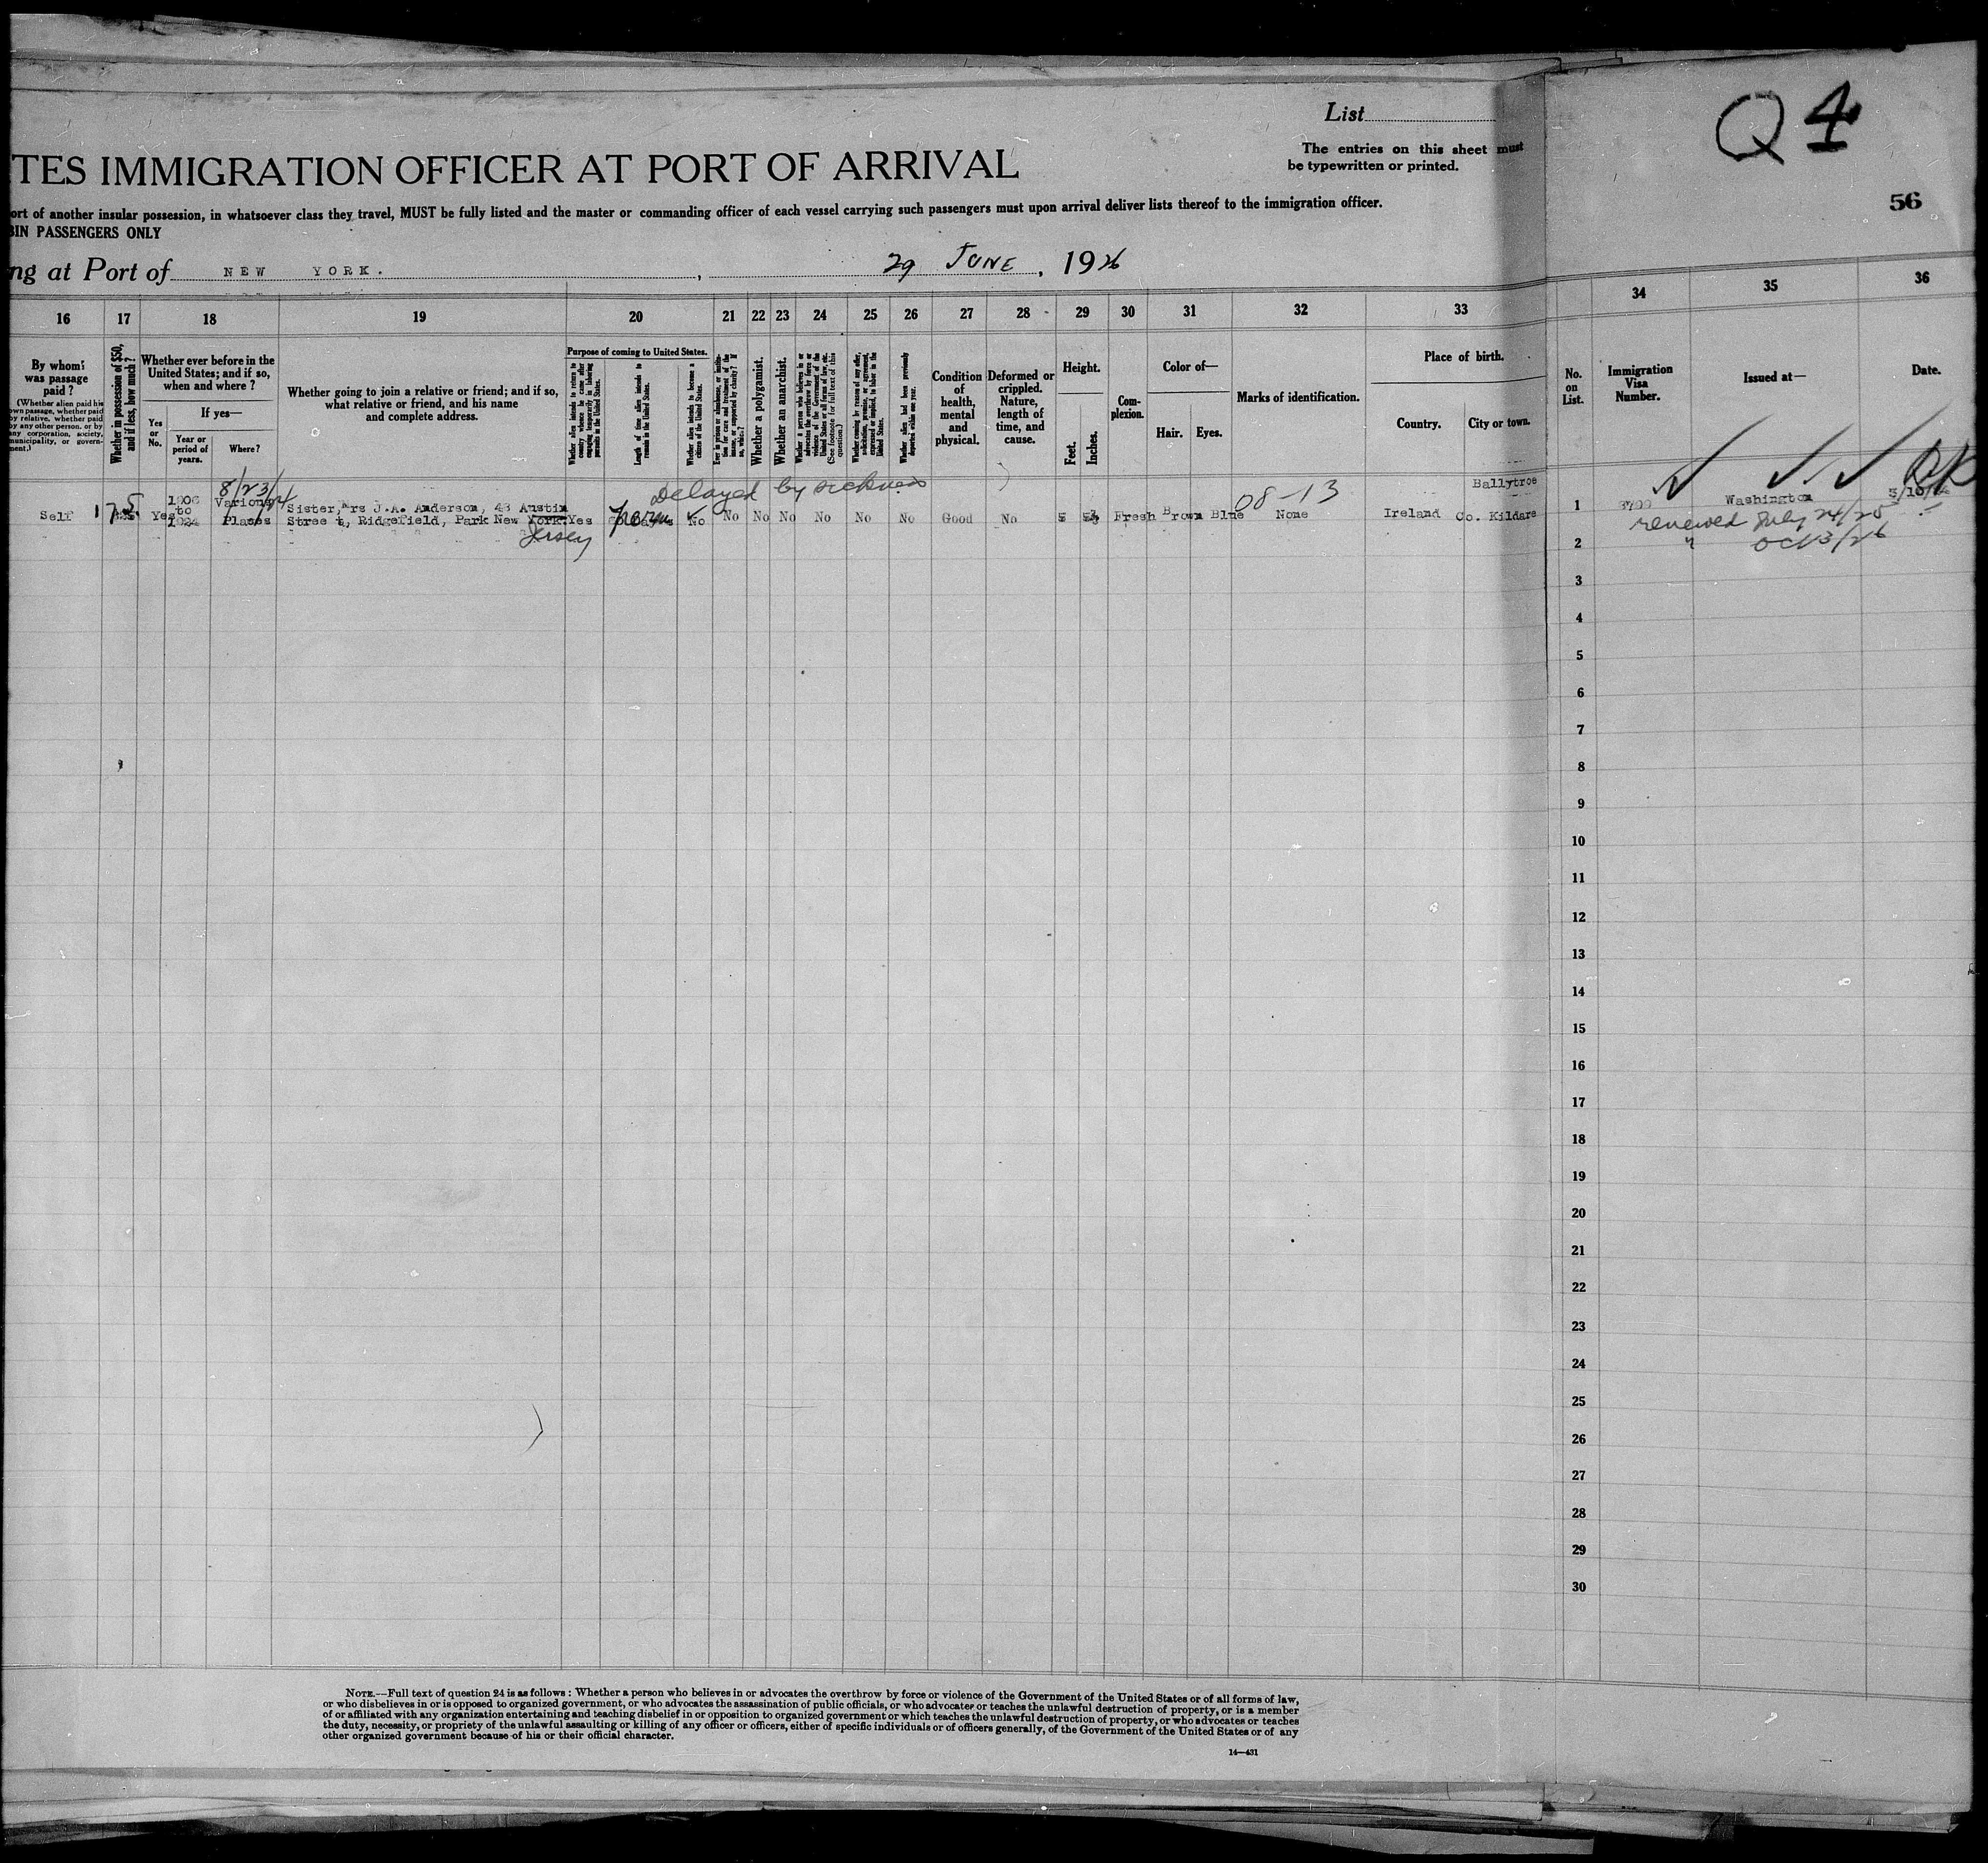 List
Q 4
The entries on this sheet must
be typewritten or printed.
TES IMMIGRATION OFFICER AT PORT OF ARRIVAL
56
ort of another insular possession, in whatsoever class they travel, MUST be fully listed and the master or commanding officer of each vessel carrying such passengers must upon arrival deliver lists thereof to the immigration officer.
BIN PASSENGERS ONLY
ng at Port of NEW YORK. , 29 JUNE, 1926
16 17 18 19 20 21 22 23 24 25 26 27 28 29 30 31 32 33 34 35 36
By whom was passage paid?
(Whether alien paid his own passage, whether paid by relative, whether paid by any other person, or by any corporation, society, municipality, or government.)
Whether in possession of $50, and if less, how much?
Whether ever before in the United States; and if so, when and where?
Yes or No.
If yes—
Year or period of years.
Where?
Whether going to join a relative or friend; and if so, what relative or friend, and his name and complete address.
Purpose of coming to United States.
Length of time alien intends to remain in the United States.
Whether alien intends to become a citizen of the United States.
Whether a polygamist.
Whether an anarchist.
(See footnote for full text of this question.)
Whether alien had been previously deported within one year.
Condition of health, mental and physical.
Deformed or crippled. Nature, length of time, and cause.
Height.
Feet. Inches.
Complexion.
Color of—
Hair. Eyes.
Marks of identification.
Place of birth.
Country. City or town.
No. on List.
Immigration Visa Number.
Issued at—
Date.
8/23/24
Delayed by sickness
08-13
OK
Ballytroe
1906 Various
to
Self 175 Yes 1924 Places
Sister, Mrs J.A. Anderson, 43 Austin
Street, Ridgefield, Park New York.
Jersey
Yes perm No No No No No No No Good No 5 Fresh Brown Blue None Ireland Co. Kildare
1 Washington
renewed July 24/25
2 " Oct 3/26
3
4
5
6
7
8
9
10
11
12
13
14
15
16
17
18
19
20
21
22
23
24
25
26
27
28
29
30
NOTE.—Full text of question 24 is as follows: Whether a person who believes in or advocates the overthrow by force or violence of the Government of the United States or of all forms of law,
or who disbelieves in or is opposed to organized government, or who advocates the assassination of public officials, or who advocates or teaches the unlawful destruction of property, or is a member
of or affiliated with any organization entertaining and teaching disbelief in or opposition to organized government or which teaches the unlawful destruction of property, or who advocates or teaches
the duty, necessity, or propriety of the unlawful assaulting or killing of any officer or officers, either of specific individuals or of officers generally, of the Government of the United States or of any
other organized government because of his or their official character.
14—431